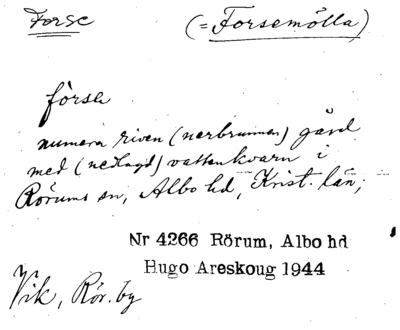 Forse (= Forsemölla)
förse
numera riven (nerbrunnen) gård
med (nedlagd) vattenkvarn i
Rörums sn, Albo hd, Krist. län;
Nr 4266 Rörum, Albo hd
Hugo Areskoug 1944
Vik, Rör. by